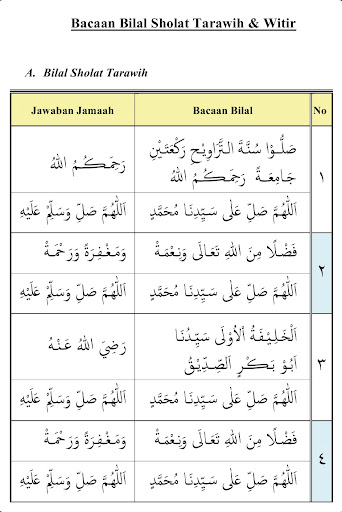 Bacaan Bilal Sholat Tarawih & Witir
A. Bilal Sholat Tarawih
Jawaban Jamaah Bacaan Bilal No
١
صَلُّوْا سُنَّةَ التَّرَاوِيْحِ رَكْعَتَيْنِ
جَامِعَةً رَحِمَكُمُ اللهُ
رَحِمَكُمُ اللهُ
اَللّٰهُمَّ صَلِّ عَلٰى سَيِّدِنَا مُحَمَّدٍ
اَللّٰهُمَّ صَلِّ وَسَلِّمْ عَلَيْهِ
٢
فَضْلًا مِنَ اللهِ تَعَالَى وَنِعْمَةً
وَمَغْفِرَةً وَرَحْمَةً
اَللّٰهُمَّ صَلِّ عَلٰى سَيِّدِنَا مُحَمَّدٍ
اَللّٰهُمَّ صَلِّ وَسَلِّمْ عَلَيْهِ
٣
اَلْخَلِيْفَةُ اْلأُوْلَى سَيِّدُنَا
اَبُوْ بَكْرٍ الصِّدِّيْقُ
رَضِيَ اللهُ عَنْهُ
اَللّٰهُمَّ صَلِّ عَلٰى سَيِّدِنَا مُحَمَّدٍ
اَللّٰهُمَّ صَلِّ وَسَلِّمْ عَلَيْهِ
٤
فَضْلًا مِنَ اللهِ تَعَالَى وَنِعْمَةً
وَمَغْفِرَةً وَرَحْمَةً
اَللّٰهُمَّ صَلِّ عَلٰى سَيِّدِنَا مُحَمَّدٍ
اَللّٰهُمَّ صَلِّ وَسَلِّمْ عَلَيْهِ